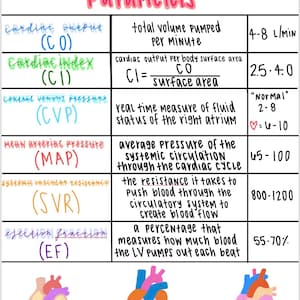 Parameters
cardiac output
(CO)
total volume pumped
per minute
4-8 L/min
Cardiac Index
(CI)
cardiac output per body surface area
CI = CO
surface area
2.5-4.0
central venous pressure
(CVP)
real time measure of fluid
status of the right atrium
"normal"
2-8
♡= 6-10
mean arterial pressure
(MAP)
average pressure of the
systemic circulation
through the cardiac cycle
65-100
systemic vascular resistance
(SVR)
the resistance it takes to
push blood through the
circulatory system to
create blood flow
800-1200
ejection fraction
(EF)
a percentage that
measures how much blood
the LV pumps out each beat
55-70%